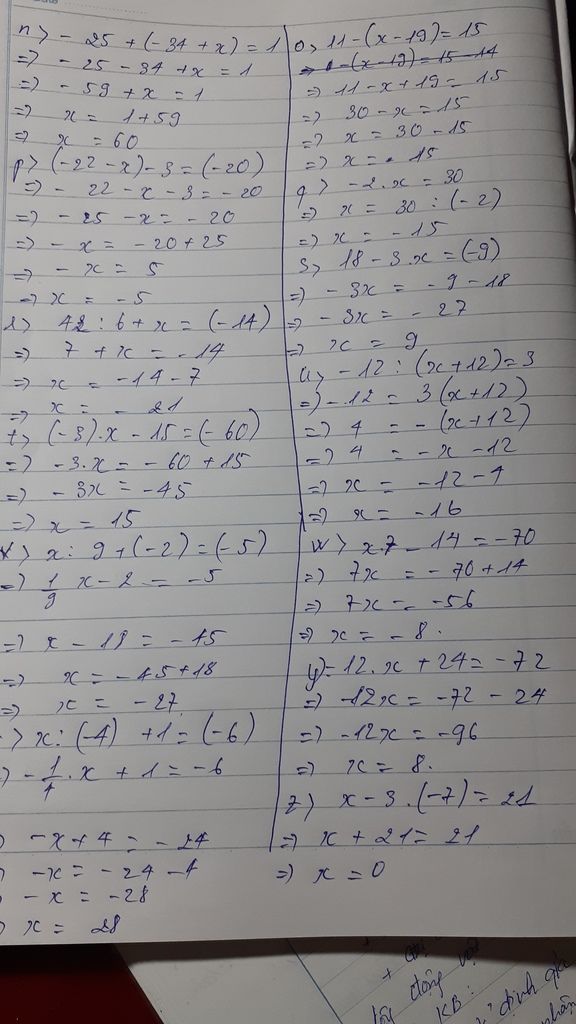 n> - 25 + (- 34 + x) = 1
=> - 25 - 34 + x = 1
=> - 59 + x = 1
=> x = 1 + 59
=> x = 60
p> (- 22 - x) - 3 = (- 20)
=> - 22 - x - 3 = - 20
=> - 25 - x = - 20
=> - x = - 20 + 25
=> - x = 5
=> x = - 5
42 : 6 + x = (- 14)
=> 7 + x = - 14
=> x = - 14 - 7
=> x = - 21
t> (- 3) . x - 15 = (- 60)
=> - 3 . x = - 60 + 15
=> - 3x = - 45
=> x = 15
> x : 9 + (- 2) = (- 5)
=> 1/9 x - 2 = - 5
=> x - 18 = - 45
=> x = - 45 + 18
=> x = - 27
> x : (- 4) + 1 = (- 6)
- 1/4 . x + 1 = - 6
- x + 4 = - 24
- x = - 24 - 4
- x = - 28
x = 28
o> 11 - (x - 19) = 15
=> - (x - 19) = 15 - 11
=> 11 - x + 19 = 15
=> 30 - x = 15
=> x = 30 - 15
=> x = 15
q> - 2 . x = 30
=> x = 30 : (- 2)
=> x = - 15
s> 18 - 3 . x = (- 9)
=> - 3x = - 9 - 18
=> - 3x = - 27
=> x = 9
u> - 12 : (x + 12) = 3
=> - 12 = 3 (x + 12)
=> 4 = - (x + 12)
=> 4 = - x - 12
=> x = - 12 - 4
=> x = - 16
w> x . 7 - 14 = - 70
=> 7x = - 70 + 14
=> 7x = - 56
=> x = - 8 .
y) - 12 . x + 24 = - 72
=> - 12x = - 72 - 24
=> - 12x = - 96
=> x = 8 .
z) x - 3 . (- 7) = 21
=> x + 21 = 21
=> x = 0
động
KB :
định